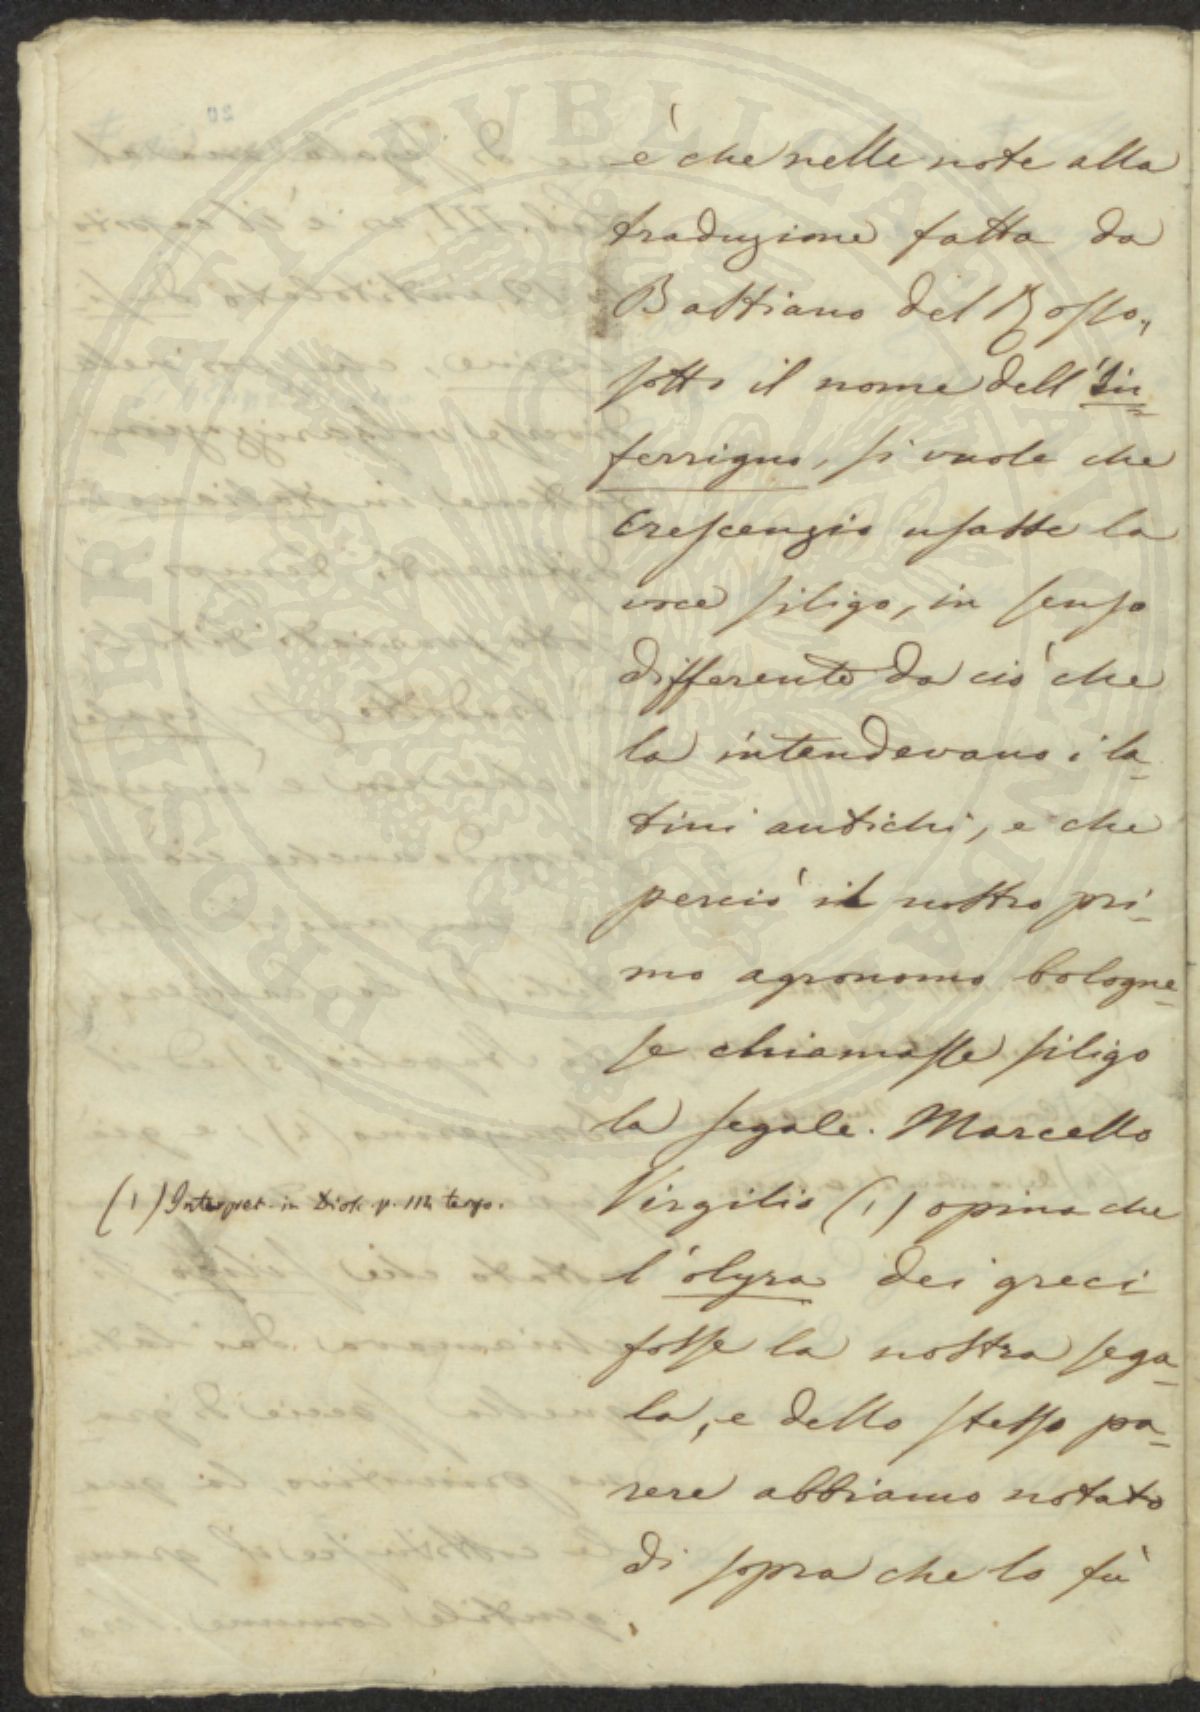 è che nelle note alla
traduzione fatta da
Bastiano del Rosso,
sotto il nome dell'In=
ferrigno, si vuole che
Crescenzio usasse la
voce siligo, in senso
differente da ciò che
la intendevano i la-
tini antichi, e che
perciò il nostro pri-
mo agronomo bologne-
se chiamasse siligo
la segale. Marcello
Virgilio (1) opina che
l'olyra dei greci
fosse la nostra sega-
la, e dello stesso pa-
rere abbiamo notato
di sopra che lo fù
(1) Interpret. in Diosc. p. 112 tergo.
PROSPERITATI PVBLICAE AVGENDAE